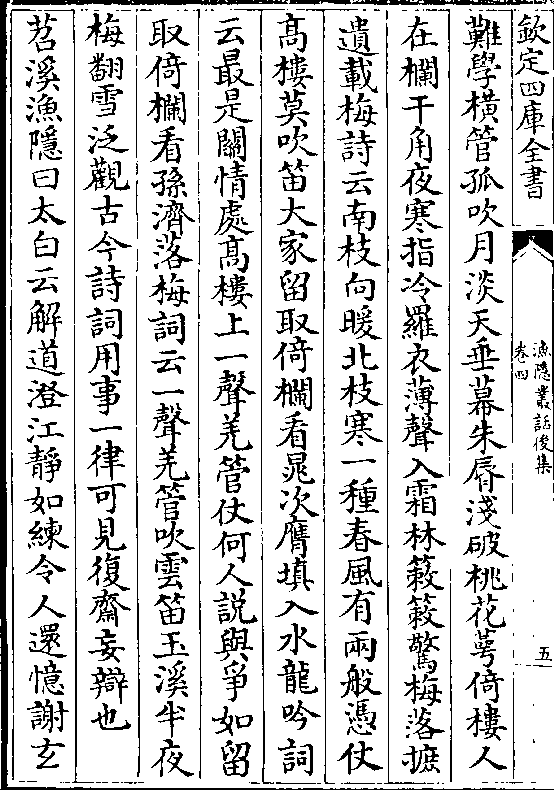 欽定四庫全書
漁隱叢話後集
卷四
五
難學橫管孤吹月淡天垂幕朱脣淺破桃花萼倚樓人
在欄干角夜寒指冷羅衣薄聲入霜林簌簌驚梅落摭
遺載梅詩云南枝向暖北枝寒一種春風有兩般憑仗
髙樓莫吹笛大家留取倚欄看晁次膺填入水龍吟詞
云最是關情處髙樓上一聲羌管仗何人説與爭如留
取倚欄看孫濟落梅詞云一聲羌管吹雲笛玉溪半夜
梅翻雪泛觀古今詩詞用事一律可見復齋妄辯也
苕溪漁隱曰太白云解道澄江靜如練令人還憶謝玄